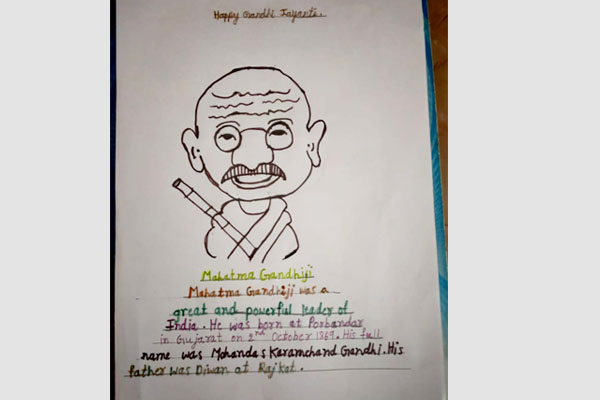 Happy Gandhi Jayanti.
Mahatma Gandhiji
Mahatma Gandhiji was a
great and powerful leader of
India. He was born at Porbandar
in Gujarat on 2nd October 1869. His full
name was Mohandas Karamchand Gandhi. His
father was Diwan at Rajkat.